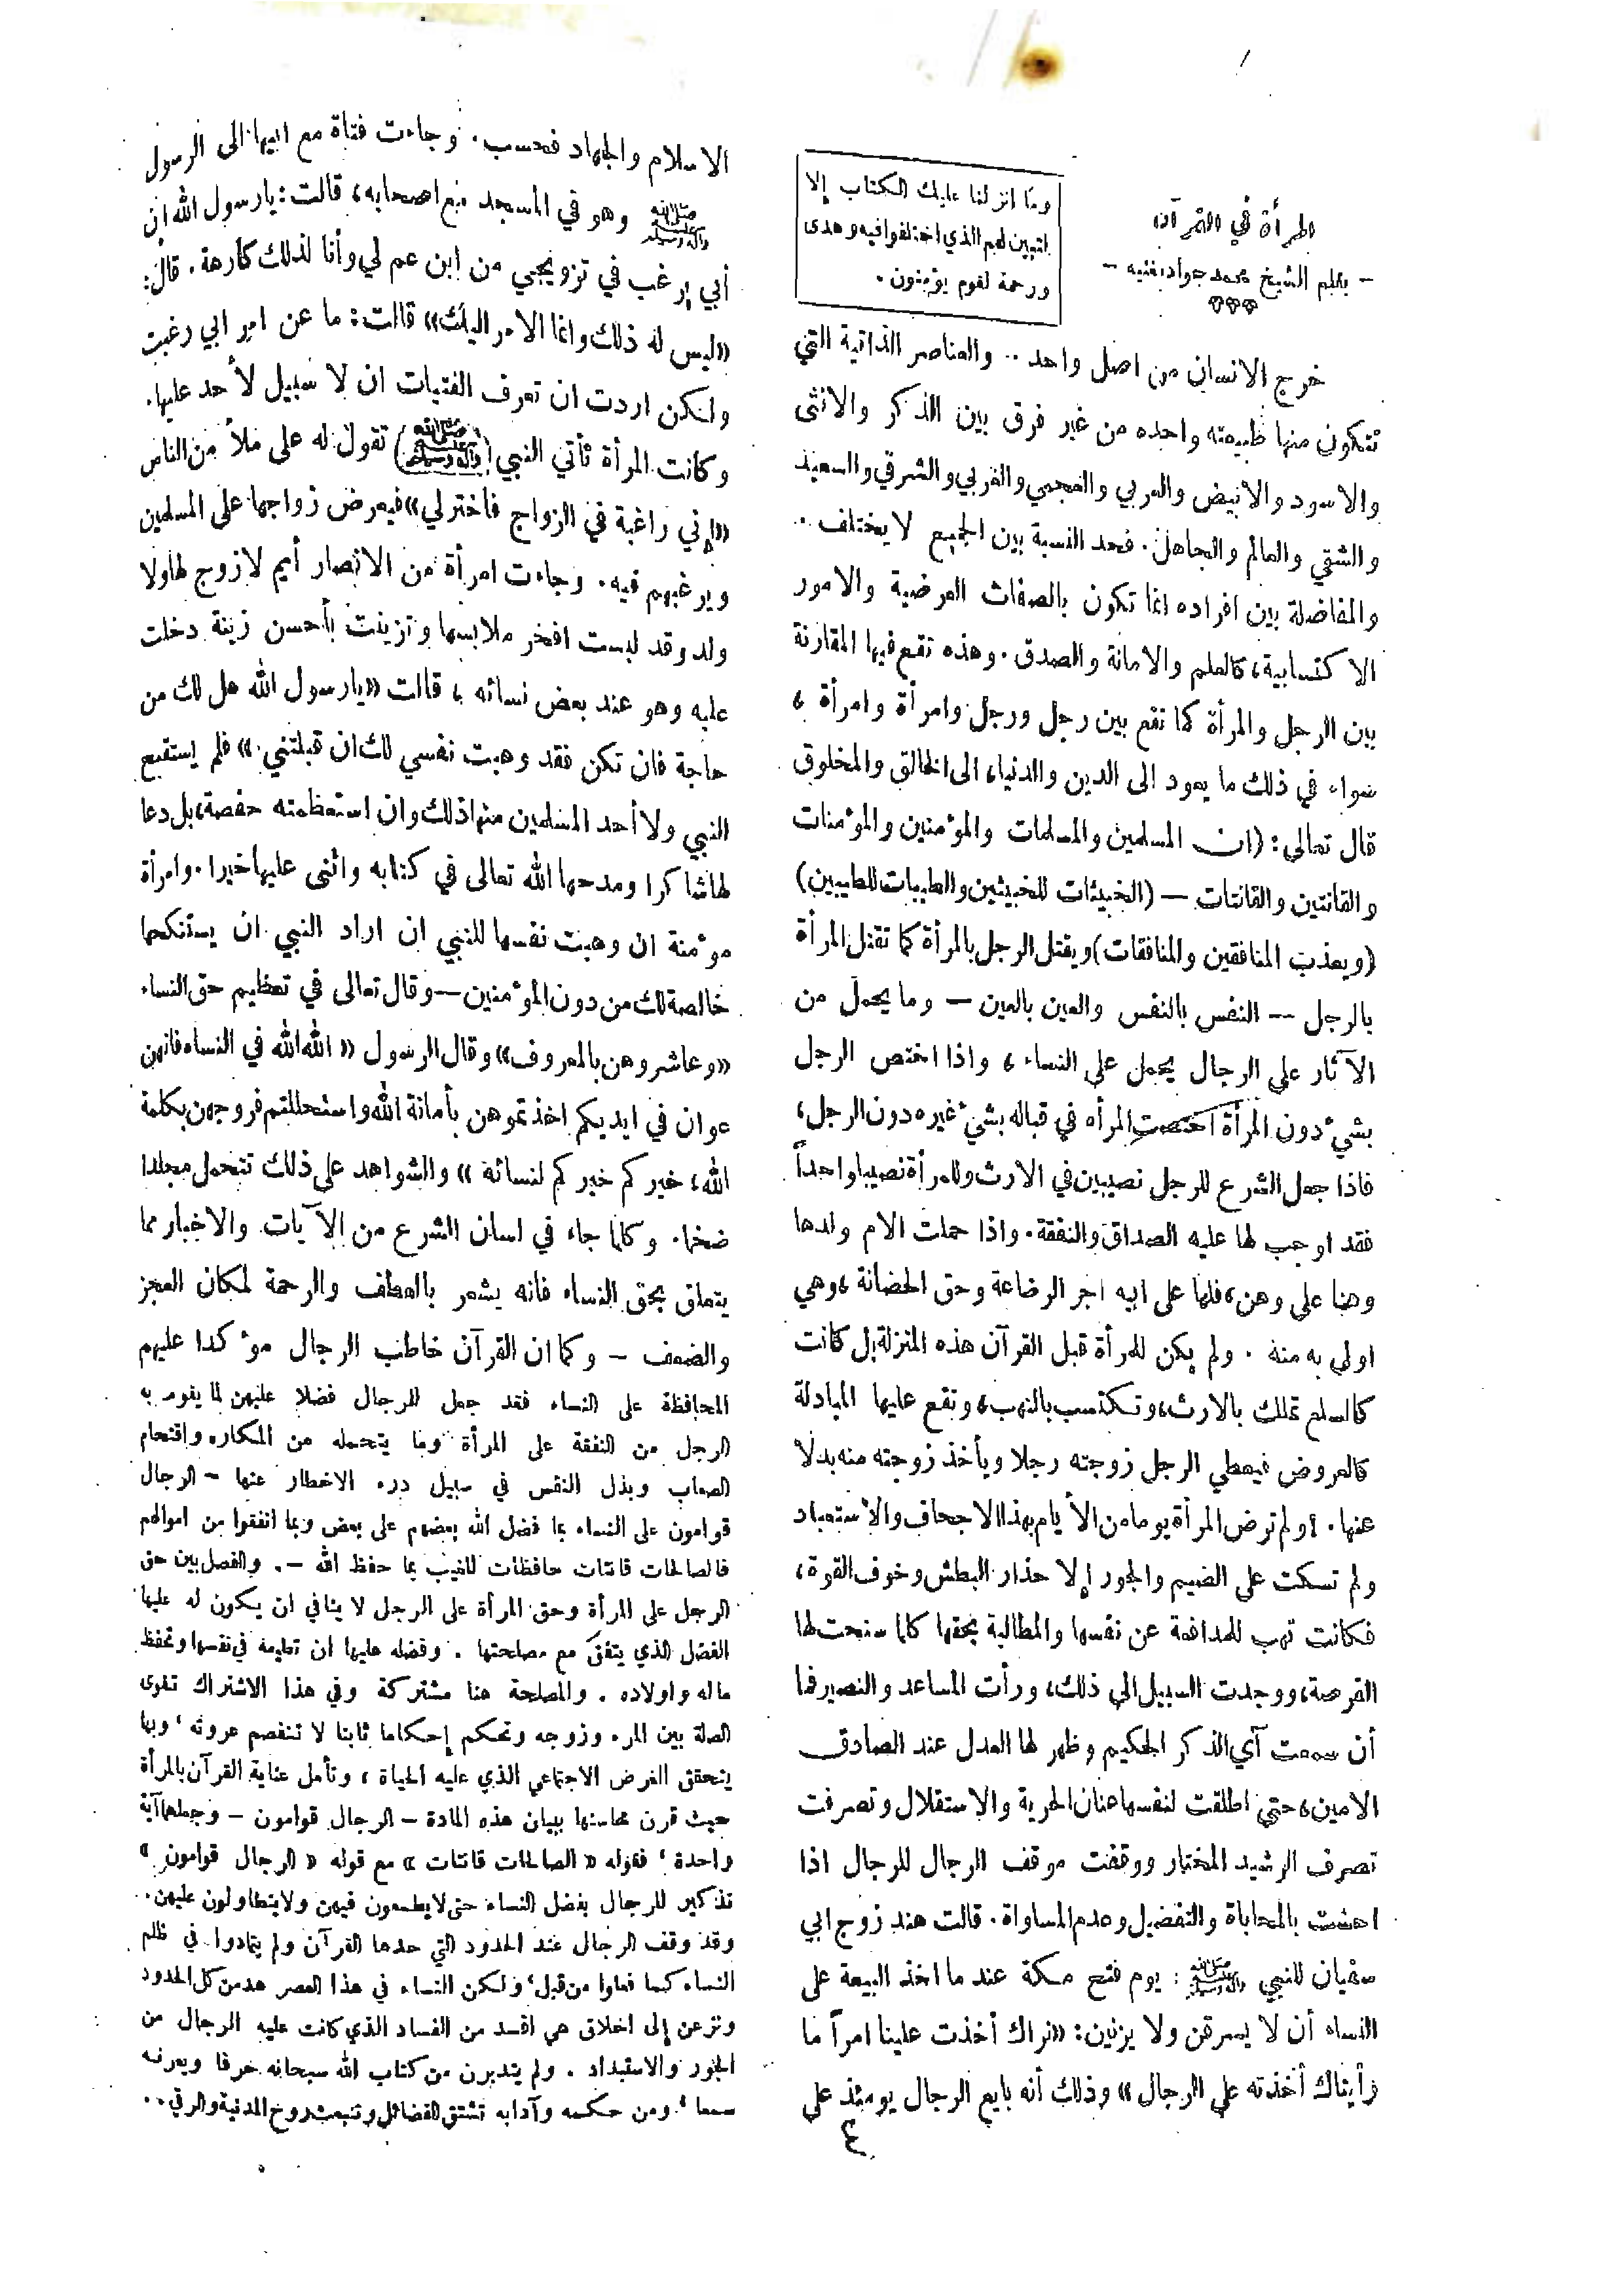 المرأة في القرآن
– بقلم الشيخ محمد جواد مغنيه –
وما انزلنا عليك الكتاب إلا
لتبين لهم الذي اختلفوا فيه وهدى
ورحمة لقوم يؤمنون.
خرج الانسان من اصل واحد .. والعناصر الذاتية التي
تتكون منها طبيعته واحده من غير فرق بين الذكر والانثى
والاسود والابيض والعربي والعجمي والغربي والشرقي والسعيد
والشقي والعالم والجاهل. فحد النسبة بين الجميع لا يختلف ..
والمفاضلة بين افراده انما تكون بالصفات العرضية والامور
الاكتسابية، كالعلم والامانة والصدق. وهذه تقع فيها المقارنة
بين الرجل والمرأة كما تقع بين رجل ورجل وامرأة وامرأة ،
سواء في ذلك ما يعود الى الدين والدنيا، الى الخالق والمخلوق
قال تعالى: (ان المسلمين والمسلمات والمؤمنين والمؤمنات
والقانتين والقانتات – (الخبيثات للخبيثين والطيبات للطيبين)
(ويعذب المنافقين والمنافقات) ويقتل الرجل بالمرأة كما تقتل المرأة
بالرجل –– النفس بالنفس والعين بالعين – وما يحمل من
الآثار على الرجال يحمل على النساء ، واذا اختص الرجل
بشيء دون المرأة اختصت المرأه في قباله بشيء غيره دون الرجل،
فاذا جعل الشرع للرجل نصيبين في الارث وللمرأة نصيبا واحداً
فقد اوجب لها عليه الصداق والنفقة. واذا حملت الام ولدها
وهنا على وهن، فلها على ابيه اجر الرضاعة وحق الحضانة ، وهي
اولى به منه . ولم يكن للمرأة قبل القرآن هذه المنزلة بل كانت
كالسلع تملك بالارث، وتكتسب بالنهب، وتقع عليها المبادلة
كالعروض فيعطي الرجل زوجته رجلا ويأخذ زوجته منه بدلا
عنها. ولم ترض المرأة يوما من الأيام بهذا الاجحاف والاستعباد
ولم تسكت على الضيم والجور إلا حذار البطش وخوف القوة،
فكانت تهب للمدافعة عن نفسها والمطالبة بحقها كلما سنحت لها
الفرصة، ووجدت السبيل الى ذلك، ورأت المساعد والنصير فما
أن سمعت آي الذكر الحكيم وظهر لها العدل عند الصادق
الامين، حتى اطلقت لنفسها عنان الحرية والاستقلال وتصرفت
تصرف الرشيد المختار ووقفت موقف الرجال للرجال اذا
احست بالمحاباة والتفضيل وعدم المساواة. قالت هند زوج ابي
سفيان للنبي صلى الله عليه وآله وسلم : يوم فتح مكة عند ما اخذ البيعة على
النساء أن لا يسرقن ولا يزنين: «نراك أخذت علينا امراً ما
رأيناك أخذته على الرجال» وذلك أنه بايع الرجال يومئذ على
٤
الاسلام والجهاد فحسب. وجاءت فتاة مع ابيها الى الرسول
صلى الله عليه وآله وسلم وهو في المسجد مع اصحابه، قالت: يا رسول الله ان
أبي يرغب في تزويجي من ابن عم لي وأنا لذلك كارهة. قال:
«ليس له ذلك وانما الامر اليك» قالت: ما عن امر ابي رغبت
ولكن اردت ان تعرف الفتيات ان لا سبيل لأحد عليها.
وكانت المرأة تأتي النبي (صلى الله عليه وآله وسلم) تقول له على ملأ من الناس
«إني راغبة في الزواج فاختر لي» فيعرض زواجها على المسلمين
ويرغبهم فيه. وجاءت امرأة من الانصار أيم لا زوج لها ولا
ولد وقد لبست افخر ملابسها وتزينت بأحسن زينة دخلت
عليه وهو عند بعض نسائه ، قالت «يا رسول الله هل لك من
حاجة فان تكن فقد وهبت نفسي لك ان قبلتني.» فلم يستقبح
النبي ولا أحد المسلمين منها ذلك وان استعظمته حفصة، بل دعا
لها شاكرا ومدحها الله تعالى في كتابه واثنى عليها خيرا. وامرأة
مؤمنة ان وهبت نفسها للنبي ان اراد النبي ان يستنكحها
خالصة لك من دون المؤمنين – وقال تعالى في تعظيم حق النساء
«وعاشروهن بالمعروف» وقال الرسول «الله الله في النساء فانهن
عوان في ايديكم اخذتموهن بأمانة الله واستحللتم فروجهن بكلمة
الله، خيركم خيركم لنسائه» والشواهد على ذلك تتحمل مجلدا
ضخما. وكلما جاء في لسان الشرع من الآيات والاخبار مما
يتعلق بحق النساء فانه يشعر بالعطف والرحمة لمكان العجز
والضعف – وكما ان القرآن خاطب الرجال مؤكدا عليهم
المحافظة على النساء فقد جعل للرجال فضلا عليهن لما يقوم به
الرجل من النفقة على المرأة وما يتحمله من المكاره واقتحام
الصعاب وبذل النفس في سبيل درء الاخطار عنها – الرجال
قوامون على النساء بما فضل الله بعضهم على بعض وبما انفقوا من اموالهم
فالصالحات قانتات حافظات للغيب بما حفظ الله –. والفصل بين حق
الرجل على المرأة وحق المرأة على الرجل لا ينافي ان يكون له عليها
الفضل الذي يتفق مع مصلحتها . وفضله عليها ان تطيعه في نفسها وتحفظ
ماله واولاده . والمصلحة هنا مشتركة وفي هذا الاشتراك تقوى
الصلة بين المرء وزوجه وتحكم إحكاما ثابتا لا تنفصم عروته ، وبها
يتحقق الغرض الاجتماعي الذي عليه الحياة ، وتأمل عناية القرآن بالمرأة
حيث قرن محاسنها ببيان هذه المادة – الرجال قوامون – وجعلهما آية
واحدة ، فقوله «الصالحات قانتات» مع قوله «الرجال قوامون»
تذكير للرجال بفضل النساء حتى لا يطمعون فيهن ولا يتطاولون عليهن.
وقد وقف الرجال عند الحدود التي حدها القرآن ولم يتمادوا في ظلم
النساء كما فعلوا من قبل، ولكن النساء في هذا العصر هدمن كل الحدود
ونزعن إلى اخلاق هي افسد من الفساد الذي كانت عليه الرجال من
الجور والاستبداد . ولم يتدبرن من كتاب الله سبحانه حرفا ويعرنه
سمعا ، ومن حكمه وآدابه تشتق الفضائل وتنبعث روح المدنية والرقي..